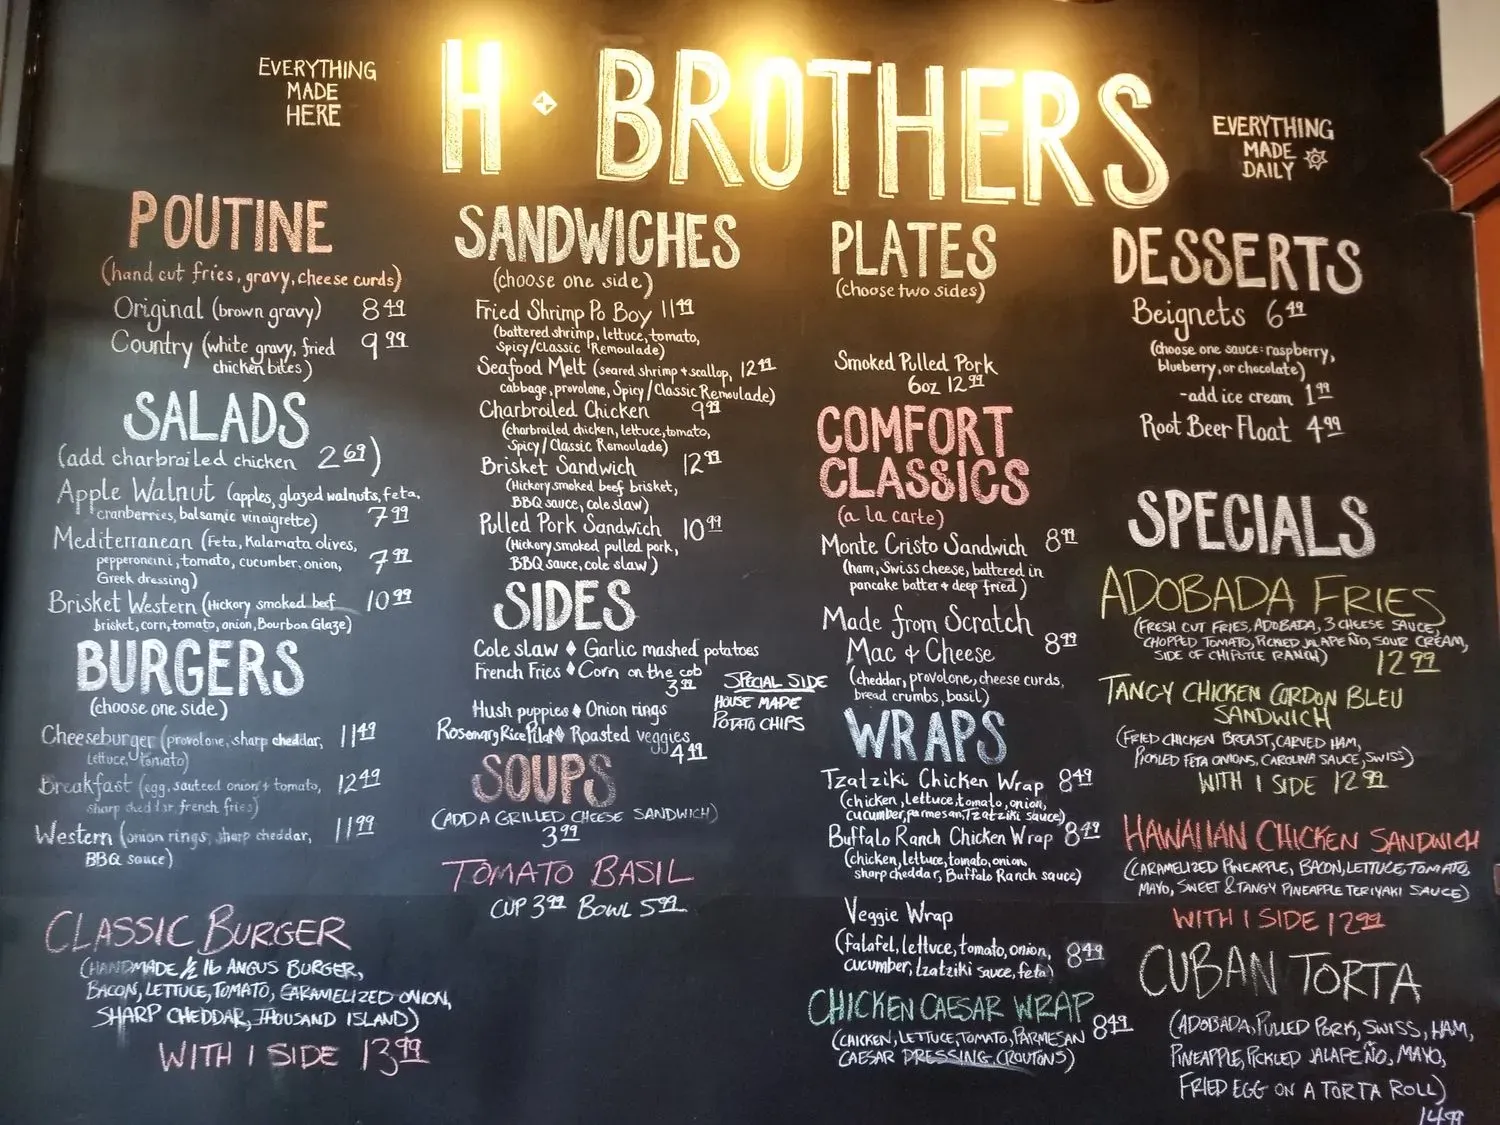 EVERYTHING
MADE
HERE
H BROTHERS
EVERYTHING
MADE
DAILY
POUTINE
(hand cut fries, gravy, cheese curds)
Original (brown gravy) 8 49
Country (white gravy, fried 9 99
chicken bites)
SALADS
(add charbroiled chicken 2 69)
Apple Walnut (apples, glazed walnuts, feta,
cranberries, balsamic vinaigrette) 7 99
Mediterranean (Feta, Kalamata olives,
pepperoncini, tomato, cucumber, onion, 7 99
Greek dressing)
Brisket Western (Hickory smoked beef 10 99
brisket, corn, tomato, onion, Bourbon Glaze)
BURGERS
(choose one side)
Cheeseburger (provolone, sharp cheddar, 11 49
lettuce, tomato)
Breakfast (egg, sauteed onion + tomato, 12 49
sharp cheddar, french fries)
Western (onion rings, sharp cheddar, 11 99
BBQ sauce)
CLASSIC BURGER
(HANDMADE 1/2 lb ANGUS BURGER,
BACON, LETTUCE, TOMATO, CARAMELIZED ONION,
SHARP CHEDDAR, THOUSAND ISLAND)
WITH 1 SIDE 13 99
SANDWICHES
(choose one side)
Fried Shrimp Po Boy 11 49
(battered shrimp, lettuce, tomato,
Spicy/Classic Remoulade)
Seafood Melt (seared shrimp + scallop, 12 49
cabbage, provolone, Spicy/Classic Remoulade)
Charbroiled Chicken 9 99
(charbroiled chicken, lettuce, tomato,
Spicy/Classic Remoulade)
Brisket Sandwich 12 99
(Hickory smoked beef brisket,
BBQ sauce, cole slaw)
Pulled Pork Sandwich 10 99
(Hickory smoked pulled pork,
BBQ sauce, cole slaw)
SIDES
Cole slaw ♦ Garlic mashed potatoes
French Fries ♦ Corn on the cob
3 99
Hush puppies ♦ Onion rings
Rosemary Rice Pilaf ♦ Roasted veggies
4 49
SPECIAL SIDE
HOUSE MADE
POTATO CHIPS
SOUPS
(ADD A GRILLED CHEESE SANDWICH)
3 99
TOMATO BASIL
CUP 3 99 BOWL 5 99
PLATES
(choose two sides)
Smoked Pulled Pork
6oz 12 99
COMFORT
CLASSICS
(a la carte)
Monte Cristo Sandwich 8 99
(ham, Swiss cheese, battered in
pancake batter + deep fried)
Made from Scratch
Mac & Cheese 8 99
(cheddar, provolone, cheese curds,
bread crumbs, basil)
WRAPS
Tzatziki Chicken Wrap 8 49
(chicken, lettuce, tomato, onion,
cucumber, parmesan, Tzatziki sauce)
Buffalo Ranch Chicken Wrap 8 49
(chicken, lettuce, tomato, onion,
sharp cheddar, Buffalo Ranch sauce)
Veggie Wrap
(falafel, lettuce, tomato, onion, 8 49
cucumber, tzatziki sauce, feta)
CHICKEN CAESAR WRAP
(CHICKEN, LETTUCE, TOMATO, PARMESAN 8 49
CAESAR DRESSING, CROUTONS)
DESSERTS
Beignets 6 49
(choose one sauce: raspberry,
blueberry, or chocolate)
-add ice cream 1 99
Root Beer Float 4 99
SPECIALS
ADOBADA FRIES
(FRESH CUT FRIES, ADOBADA, 3 CHEESE SAUCE,
CHOPPED TOMATO, PICKLED JALAPEÑO, SOUR CREAM,
SIDE OF CHIPOTLE RANCH) 12 99
TANGY CHICKEN CORDON BLEU
SANDWICH
(FRIED CHICKEN BREAST, CARVED HAM,
PICKLED FETA ONIONS, CAROLINA SAUCE, SWISS)
WITH 1 SIDE 12 99
HAWAIIAN CHICKEN SANDWICH
(CARAMELIZED PINEAPPLE, BACON, LETTUCE, TOMATO,
MAYO, SWEET & TANGY PINEAPPLE TERIYAKI SAUCE)
WITH 1 SIDE 12 99
CUBAN TORTA
(ADOBADA, PULLED PORK, SWISS, HAM,
PINEAPPLE, PICKLED JALAPEÑO, MAYO,
FRIED EGG ON A TORTA ROLL)
14 99